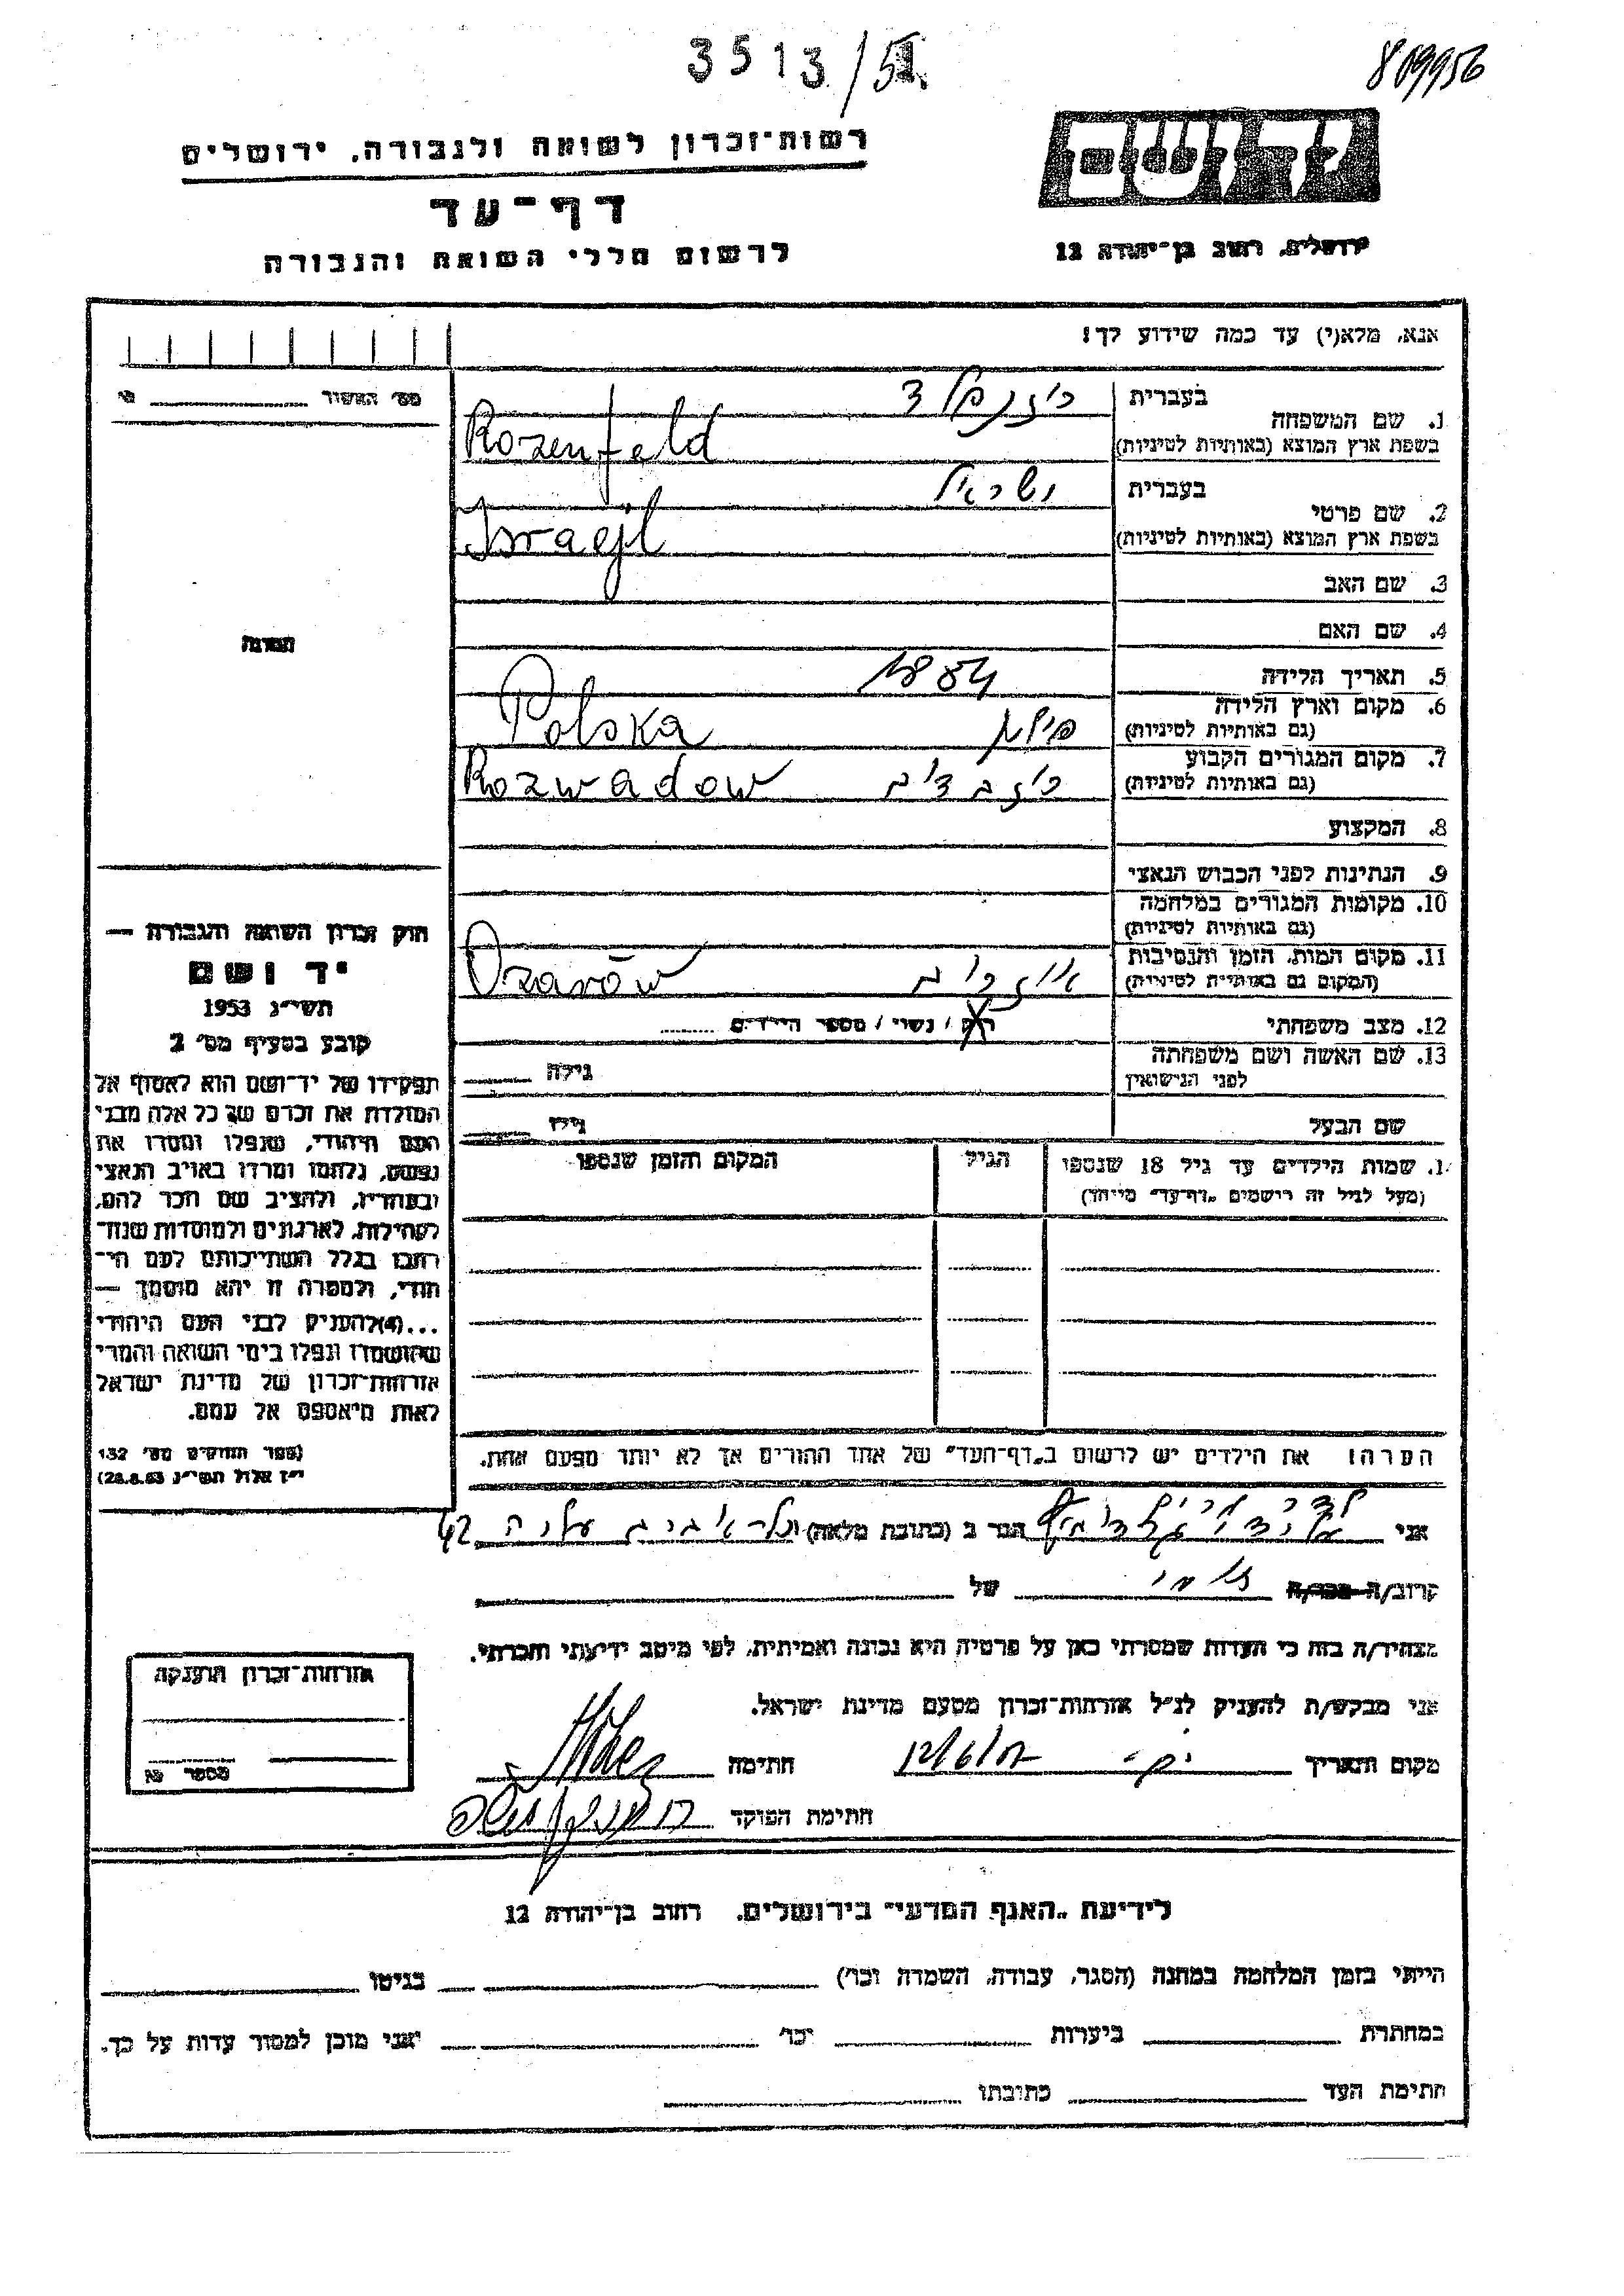 3513/51
809956
רשות־זכרון לשואה ולגבורה, ירושלים
דף־עד
לרשום חללי השואה והגבורה
יד ושם
ירושלים, רחוב בן־יהודה 12
אנא, מלא(י) עד כמה שידוע לך!
מס' האשור
1. שם המשפחה
בעברית רוזנפלד
בשפת ארץ המוצא (באותיות לטיניות) Rozenfeld
2. שם פרטי
בעברית ישראל
בשפת ארץ המוצא (באותיות לטיניות) Israejl
3. שם האב
4. שם האם
5. תאריך הלידה 1884
6. מקום וארץ הלידה
(גם באותיות לטיניות) פולין Polska
7. מקום המגורים הקבוע
(גם באותיות לטיניות) רוזבדוב Rozwadow
8. המקצוע
9. הנתינות לפני הכבוש הנאצי
10. מקומות המגורים במלחמה
(גם באותיות לטיניות)
11. מקום המות, הזמן והנסיבות
(המקום גם באותיות לטיניות) אוזרוב Ozarów
12. מצב משפחתי רוק / נשוי / מספר הילדים
13. שם האשה ושם משפחתה
לפני הנישואין גילה
שם הבעל גילו
1. שמות הילדים עד גיל 18 שנספו הגיל המקום והזמן שנספו
(מעל לגיל זה רושמים „דף־עד" מיוחד)
הערה: את הילדים יש לרשום ב„דף־העד" של אחד ההורים אך לא יותר מפעם אחת.
תמונה
חוק זכרון השואה והגבורה —
יד ושם
תשי"ג 1953
קובע בסעיף מס' 2
תפקידו של יד־ושם הוא לאסוף אל
המולדת את זכרם של כל אלה מבני
העם היהודי, שנפלו ומסרו את
נפשם, נלחמו ומרדו באויב הנאצי
ובעוזריו, ולהציב שם וזכר להם,
לקהילות, לארגונים ולמוסדות שנח־
רבו בגלל השתייכותם לעם הי־
הודי, ולמטרה זו יהא מוסמך —
...(4)להעניק לבני העם היהודי
שהושמדו ונפלו בימי השואה והמרי
אזרחות־זכרון של מדינת ישראל
לאות היאספם אל עמם.
(ספר החוקים מס' 132
י"ז אלול תשי"ג 28.8.53)
אני הגר ב (כתובת מלאה) תל אביב עליה 42
קרוב/ה מכר/ה של
מצהיר/ה בזה כי העדות שמסרתי כאן על פרטיה היא נכונה ואמיתית, לפי מיטב ידיעתי והכרתי.
אני מבקש/ת להעניק לנ"ל אזרחות־זכרון מטעם מדינת ישראל.
מקום ותאריך חתימה
חתימת הפוקד
אזרחות־זכרון הוענקה
מספר
לידיעת „האגף המדעי" בירושלים. רחוב בן־יהודה 12
הייתי בזמן המלחמה במחנה (הסגר, עבודה, השמדה וכו') בגיטו
במחתרת ביערות וכו' ואני מוכן למסור עדות על כך.
חתימת העד כתובתו